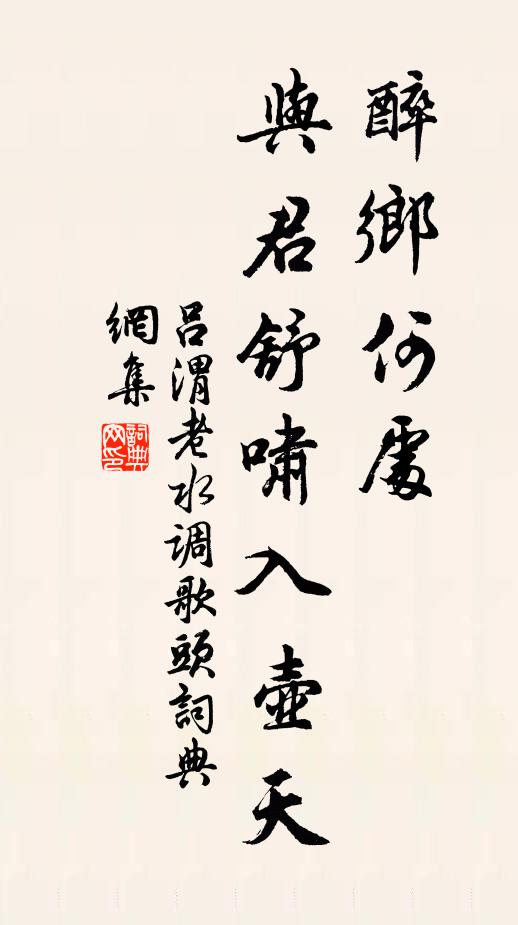 醉鄉何處
與君舒嘯入壺天
吕渭老水调歌頭詞典
網集
詞典网印